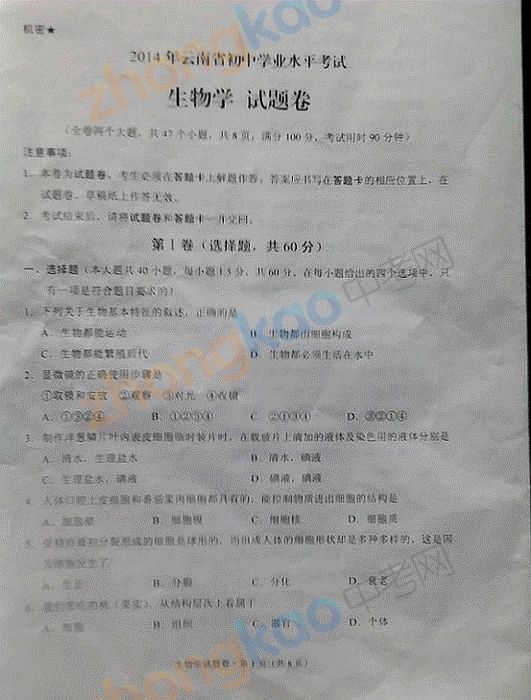 机密★
2014年云南省初中学业水平考试
生物学 试题卷
(全卷两个大题,共47个小题,共8页;满分100分,考试用时90分钟)
注意事项:
1. 本卷为试题卷。考生必须在答题卡上解题作答。答案应书写在答题卡的相应位置上,在
试题卷、草稿纸上作答无效。
2. 考试结束后,请将试题卷和答题卡一并交回。
第Ⅰ卷(选择题,共60分)
一、选择题(本大题共40小题,每小题1.5分,共60分。在每小题给出的四个选项中,只
有一项是符合题目要求的)
1. 下列关于生物基本特征的叙述,正确的是
A. 生物都能运动 B. 生物都由细胞构成
C. 生物都能繁殖后代 D. 生物都必须生活在水中
2. 显微镜的正确使用步骤是
①取镜和安放 ②观察 ③对光 ④收镜
A. ①③②④ B. ①②③④ C. ②①③④ D. ③②①④
3. 制作洋葱鳞片叶内表皮细胞临时装片时,在载玻片上滴加的液体及染色用的液体分别是
A. 清水,生理盐水 B. 清水,碘液
C. 生理盐水,碘液 D. 碘液,碘液
4. 人体口腔上皮细胞和番茄果肉细胞都具有的,能控制物质进出细胞的结构是
A. 细胞壁 B. 细胞膜 C. 细胞核 D. 细胞质
5. 受精卵最初分裂形成的细胞是球形的,而组成人体的细胞形状却是多种多样的,这是因
为细胞发生了
A. 生长 B. 分裂 C. 分化 D. 衰老
6. 我们常吃的桃(果实),从结构层次上看属于
A. 细胞 B. 组织 C. 器官 D. 个体
生物学试题卷·第1页(共8页)
zhongkao中考网
zhongkao中考网
zhongkao中考网